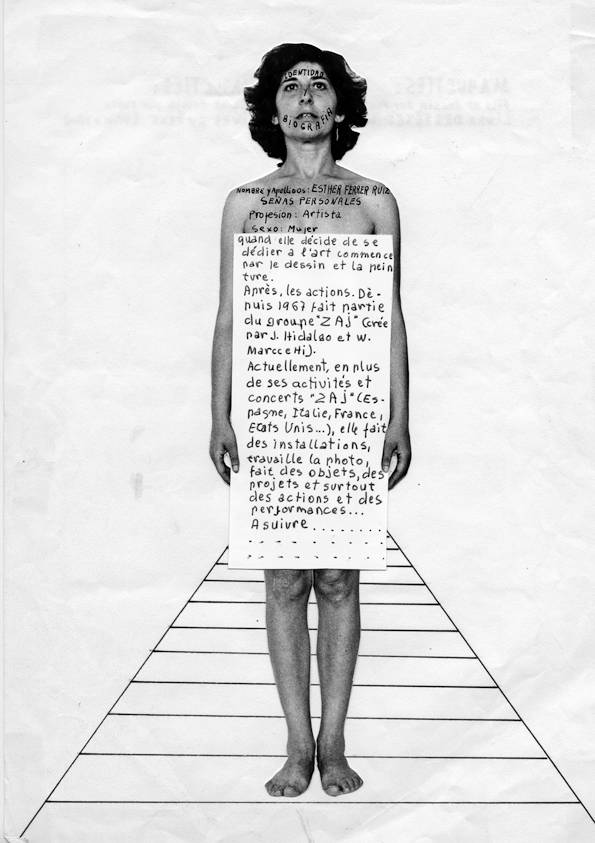 IDENTIDAD
Y
BIOGRAFIA
NOMBRE y Apellidos: ESTHER FERRER RUIZ
SEÑAS PERSONALES
Profesion: Artista
Sexo: Mujer
quand elle décide de se
dédier a l'art commence
par le dessin et la pein
ture.
Après, les actions. Dè-
puis 1967 fait partie
du groupe "ZAJ" (crée
par J. Hidalgo et W.
Marccetti).
Actuellement, en plus
de ses activités et
concerts "ZAJ" (Es-
pagne, Italie, France,
Etats Unis...), elle fait
des installations,
travaille la photo,
fait des objets, des
projets et surtout
des actions et des
performances...
A suivre ........